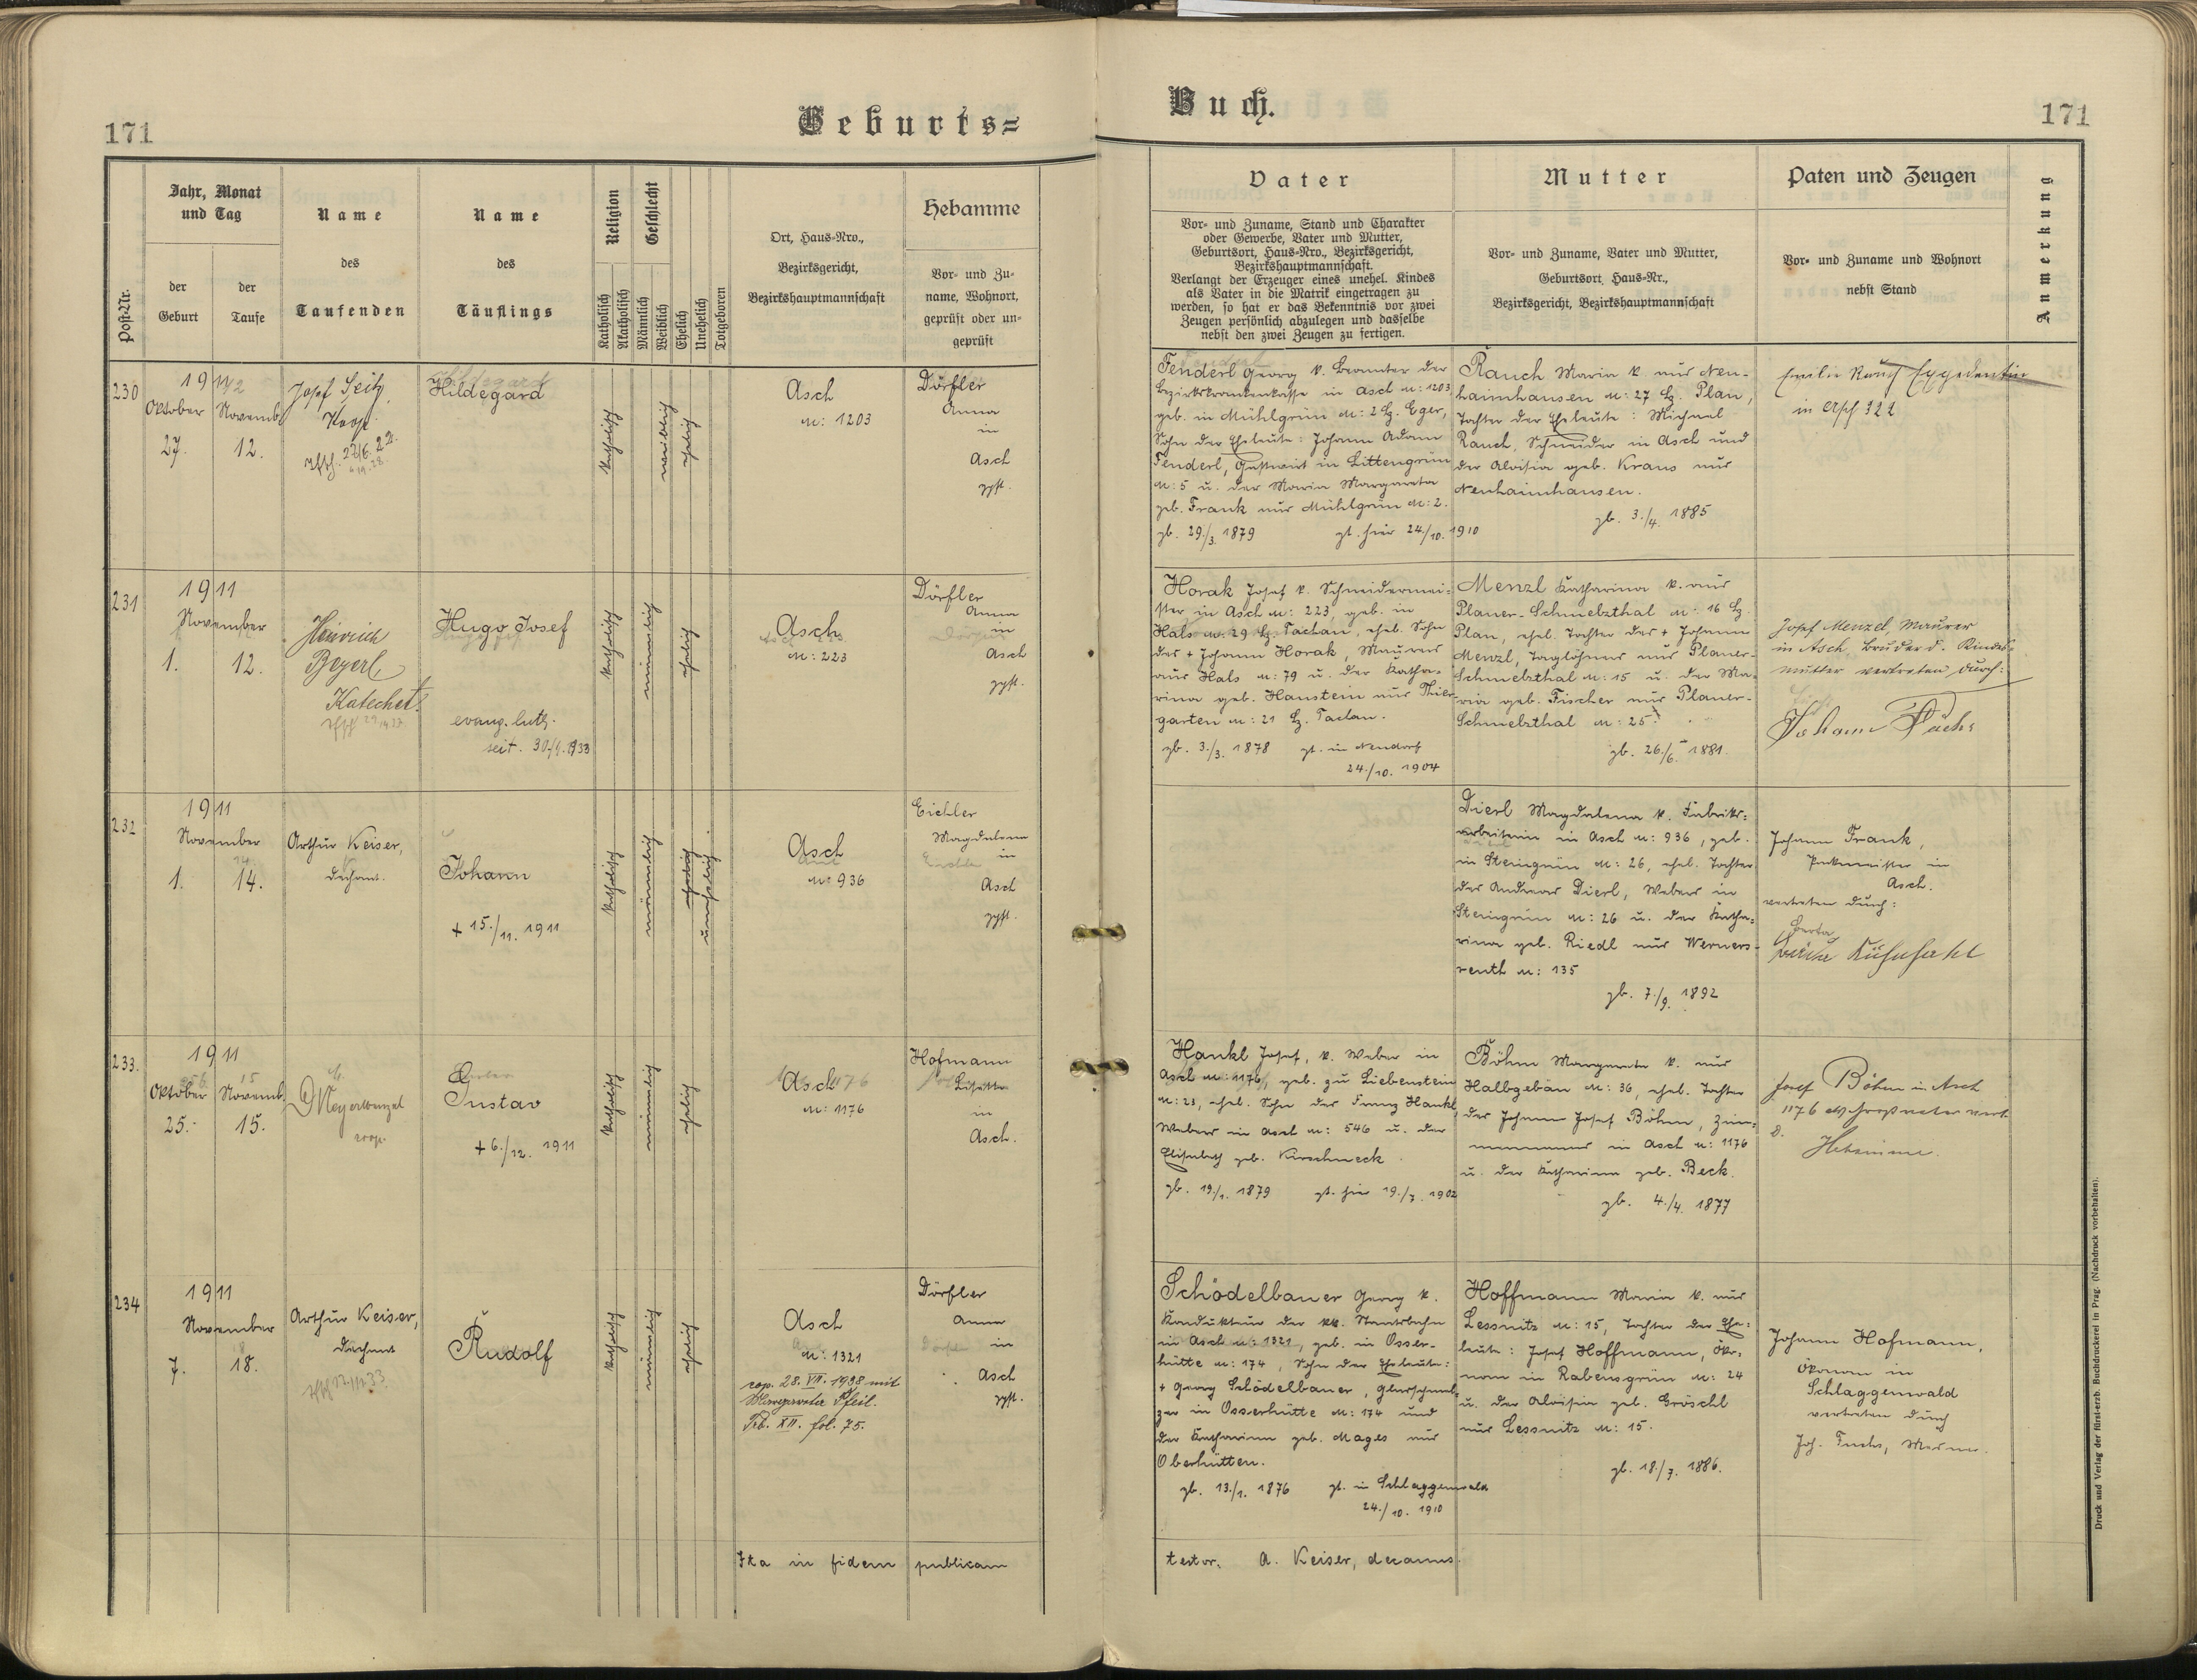 171
Geburts=
Post-Nr.
Jahr, Monat
und Tag
der
Geburt
der
Taufe
Name
des
Taufenden
Name
des
Täuflings
Religion
Katholisch
Akatholisch
Geschlecht
Männlich
Weiblich
Ehelich
Unehelich
Totgeboren
Ort, Haus-Nro.,
Bezirksgericht,
Bezirkshauptmannschaft
Hebamme
Vor- und Zu-
name, Wohnort,
geprüft oder un-
geprüft
230
1911
Oktober
27.
Novemb.
12.
Josef Seitz,
Koop.
Hildegard
katholisch
weiblich
ehelich
Asch
N: 1203
Dörfler
Anna
in
Asch
gpft.
231
1911
November
1.
12.
Heinrich
Beyerl
Katechet.
Hugo Josef
evang. luth.
seit. 30/9. 1933
katholisch
männlich
ehelich
Asch
N: 223
Dörfler
Anna
in
Asch
gpft.
232
1911
November
1.
14.
Arthur Keiser,
Dechant.
Johann
+ 15./11. 1911
katholisch
männlich
ehelich
unehelich
Asch
N: 936
Eichler
Magdalena
in
Asch
gpft.
233.
1911
Oktober
25.
Novemb.
15.
Meyer Wenzel
coop.
Gustav
+ 6./12. 1911
katholisch
männlich
ehelich
Asch
N: 1176
Hofmann
Lisette
in
Asch.
234
1911
November
7.
18.
Arthur Keiser,
Dechant
Rudolf
katholisch
männlich
ehelich
Asch
N: 1321
cop. 28. VII. 1938 mit
Pfeil.
Trb. XII. fol. 75.
Dörfler
Anna
in
Asch
gpft.
Ita in fidem publicam
Buch.
171
Vater
Vor- und Zuname, Stand und Charakter
oder Gewerbe, Vater und Mutter,
Geburtsort, Haus-Nro., Bezirksgericht,
Bezirkshauptmannschaft.
Verlangt der Erzeuger eines unehel. Kindes
als Vater in die Matrik eingetragen zu
werden, so hat er das Bekenntnis vor zwei
Zeugen persönlich abzulegen und dasselbe
nebst den zwei Zeugen zu fertigen.
Mutter
Vor- und Zuname, Vater und Mutter,
Geburtsort, Haus-Nr.,
Bezirksgericht, Bezirkshauptmannschaft
Paten und Zeugen
Vor- und Zuname und Wohnort
nebst Stand
Anmerkung
Fenderl Georg k. Beamter der
Bezirkskrankenkasse in Asch N: 1203,
geb. in Mühlgrün N: 2 Bz. Eger,
Sohn der Eheleute: Johann Adam
Fenderl, Gastwirt in Littengrün
N: 5 u. der Maria Margareta
geb. Frank aus Mühlgrün N: 2.
gb. 29./3. 1879 gt. hier 24./10. 1910
Rauch Maria k. aus Neu-
haimhausen N: 27 Bz. Plan,
Tochter der Eheleute: Michael
Rauch, Schneider in Asch und
der Aloisia geb. Kraus aus
Neuhaimhausen.
gb. 3./4. 1885
Emilie Rauch Expedientin
in Asch 322
Horak Josef k. Schneidermei-
ster in Asch N: 223, geb. in
Hals N: 29 Bz. Tachau, ehel. Sohn
des + Johann Horak, Maurers
aus Hals N: 79 u. der Katha-
rina geb. Haustein aus Thier-
garten N: 21 Bz. Tachau.
gb. 3./3. 1878 gt. in Neudorf
24./10. 1904
Menzl Katharina k. aus
Planer-Schmelzthal N: 16 Bz.
Plan, ehel. Tochter des + Johann
Menzl, Taglöhners aus Planer-
Schmelzthal N: 15 u. der Ma-
ria geb. Fischer aus Planer-
Schmelzthal N: 25.
gb. 26./6. 1881.
Josef Menzel, Maurer
in Asch, Bruder d. Kindes-
mutter vertreten durch:
Johann
Dierl Magdalena k. Fabriks-
arbeiterin in Asch N: 936, geb.
in Steingrün N: 26, ehel. Tochter
des Andreas Dierl, Webers in
Steingrün N: 26 u. der Katha-
rina geb. Riedl aus Werners-
reuth N: 135
gb. 7./9. 1892
Johann Frank,
in
Asch.
vertreten durch:
Berta
Hankl Josef, k. Weber in
Asch N: 1176, geb. zu Liebenstein
N: 23, ehel. Sohn des Franz Hankl,
Webers in Asch N: 546 u. der
Elisabeth geb. Kirschneck.
gb. 19./1. 1879 gt. hier 19./7. 1902
Böhm Margareta k. aus
Halbgebäu N: 36, ehel. Tochter
des Johann Josef Böhm, Zim-
mermanns in Asch N: 1176
u. der Katharina geb. Beck.
gb. 4./4. 1877
Josef Böhm in Asch
1176 Großvater vert.
d.
Hebamme.
Schödelbauer Georg k.
Kondukteur der kk. Staatsbahn
in Asch N: 1321, geb. in Osser-
hütte N: 174, Sohn der Eheleute:
+ Georg Schödelbauer, Glasschmel-
zer in Osserhütte N: 174 und
der Katharina geb. Mages aus
Oberhütten.
gb. 13./1. 1876 gt. in Schlaggenwald
24./10. 1910
Hoffmann Maria k. aus
Lessnitz N: 15, Tochter der Ehe-
leute: Josef Hoffmann, Öko-
nom in Rabensgrün N: 24
u. der Aloisia geb. Gröschl
aus Lessnitz N: 15.
gb. 18./7. 1886.
Johann Hofmann,
Ökonom in
Schlaggenwald
vertreten durch
Joh. Fuchs, Mesner.
testor. A. Keiser, decanus.
Druck und Verlag der fürst-erzb. Buchdruckerei in Prag. (Nachdruck vorbehalten).